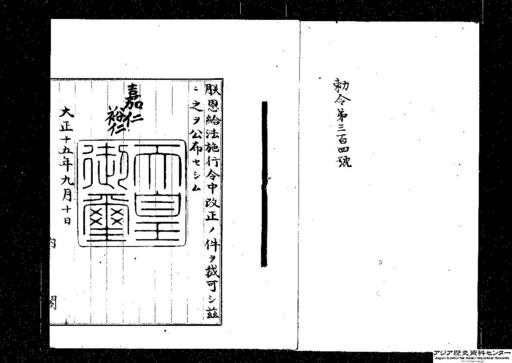 勅令第三百四號
朕恩給法施行令中改正ノ件ヲ裁可シ茲
ニ之ヲ公布セシム
嘉仁
裕仁
天皇
御璽
大正十五年九月十日
内閣
アジア歴史資料センター
Japan Center for Asian Historical Records